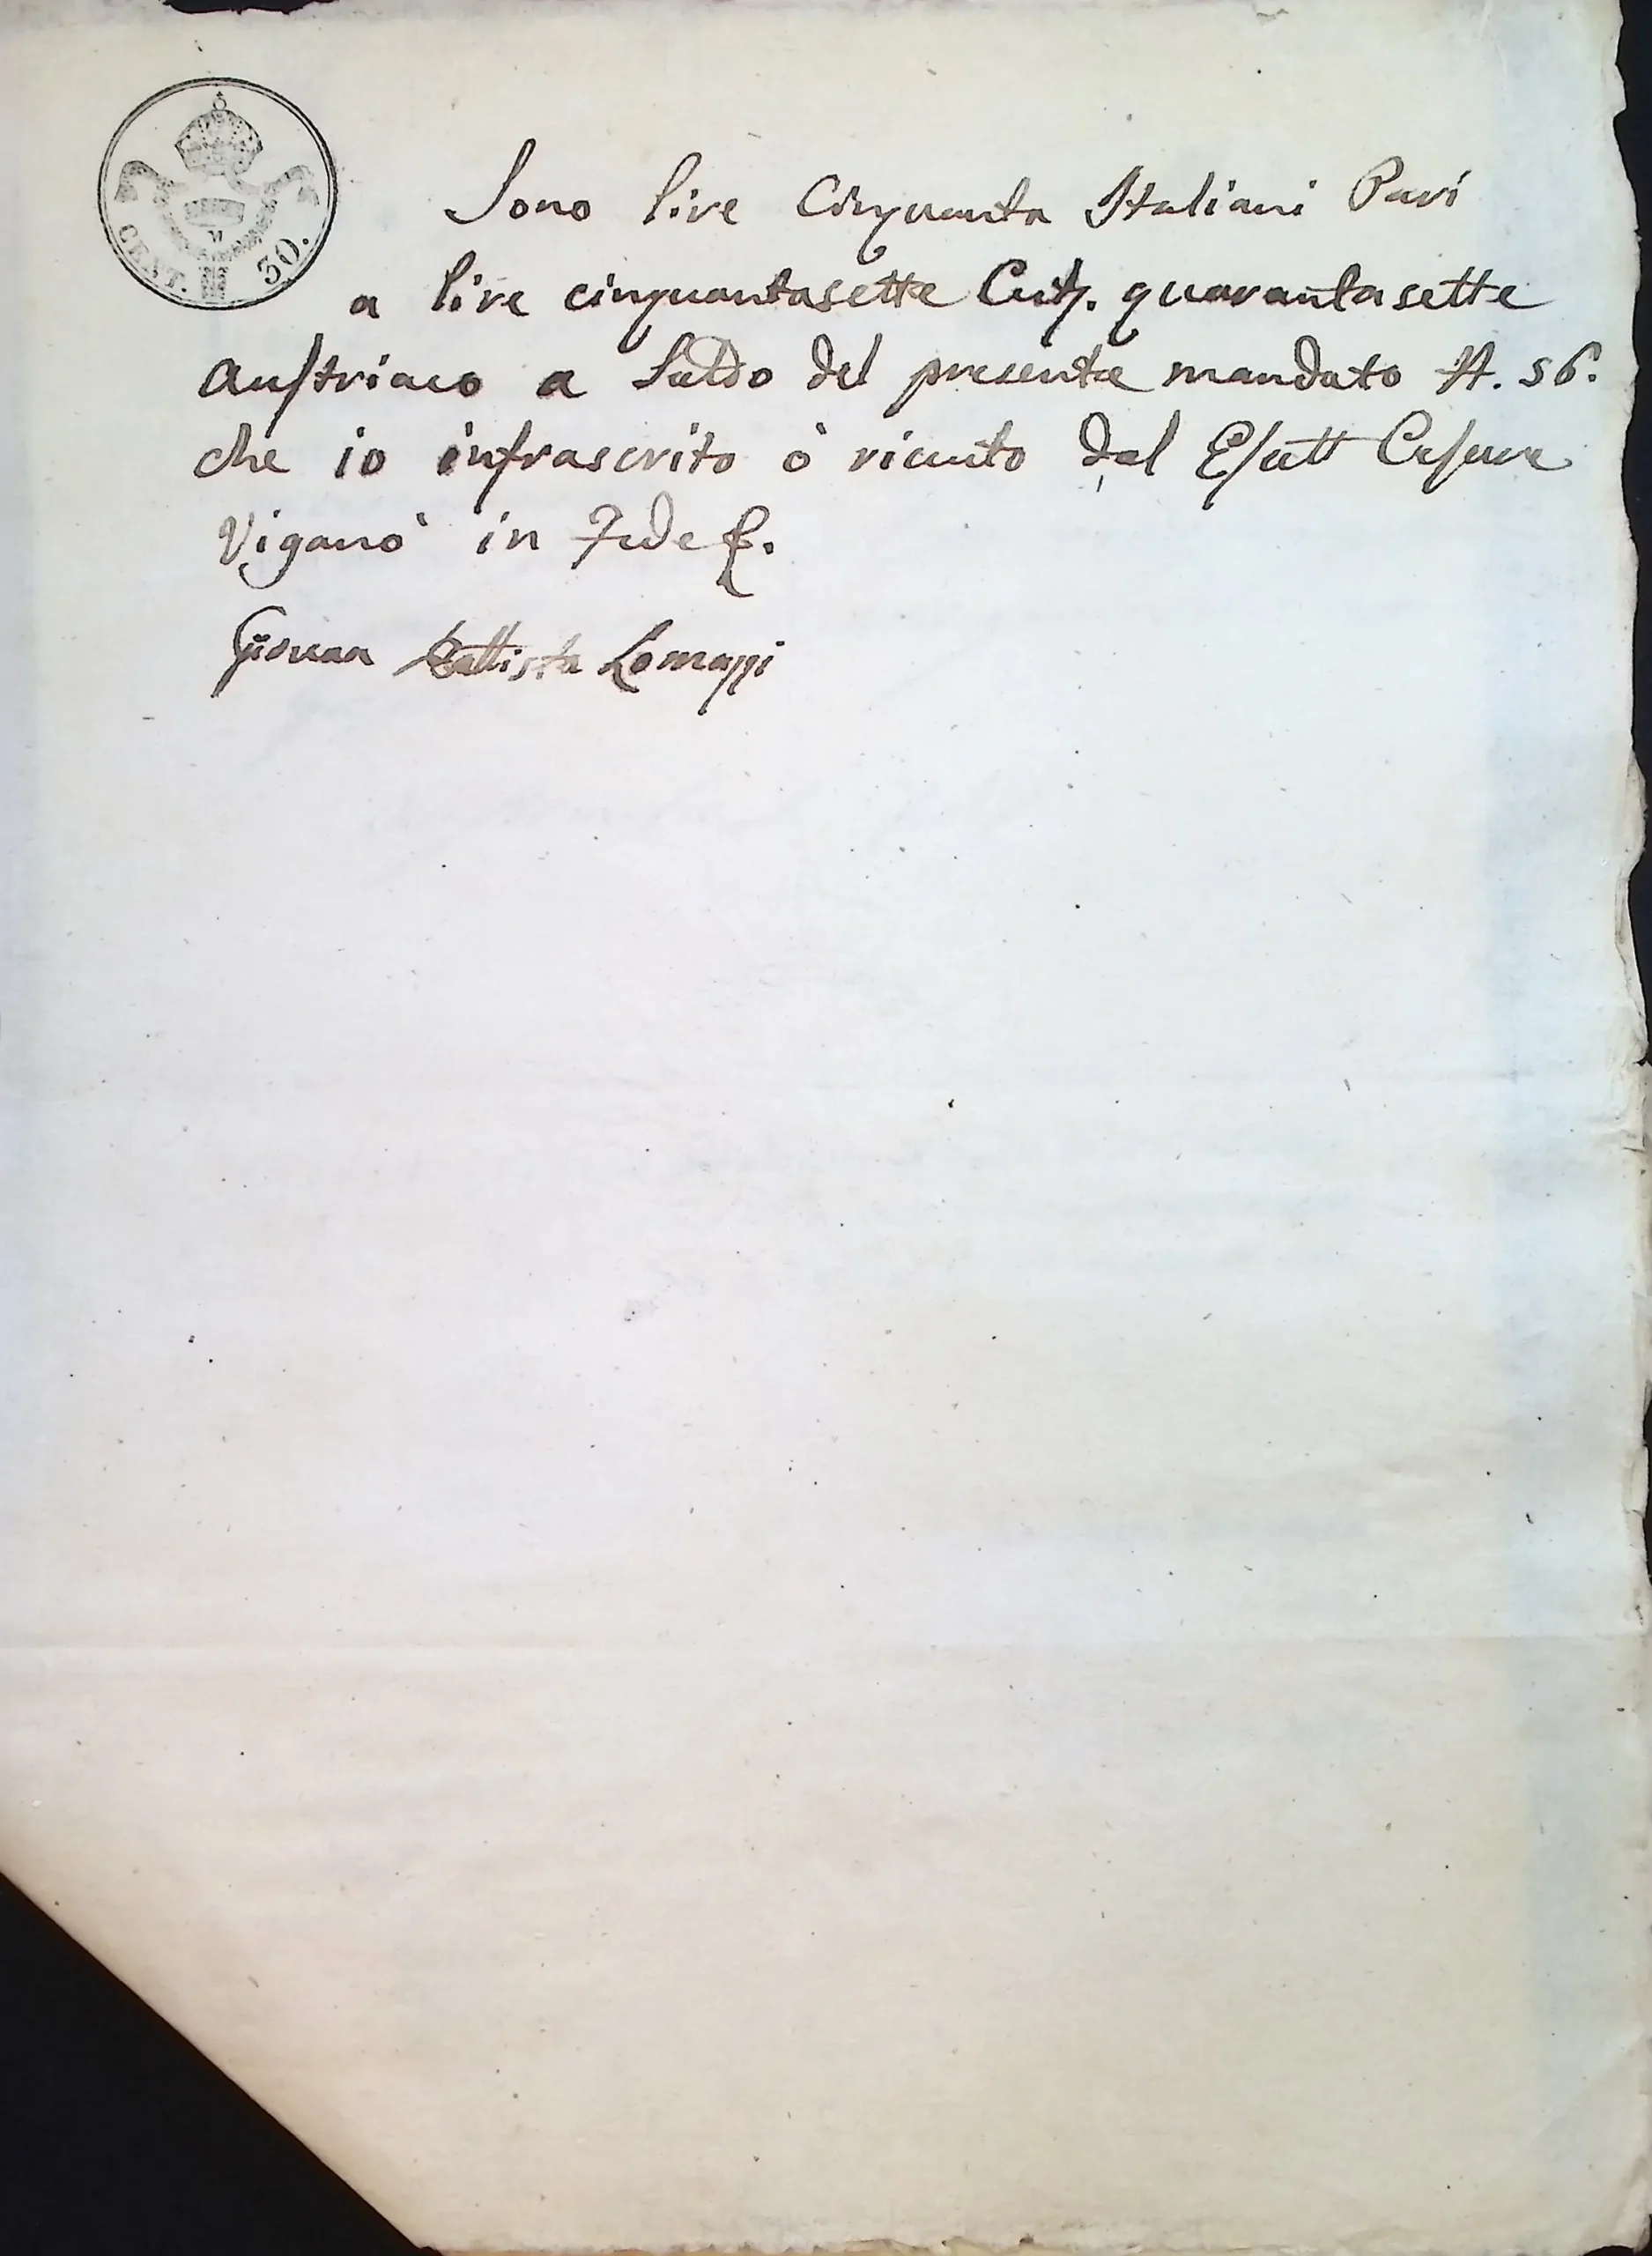 CENT. 30.
Sono live Cinquanta Italiani Pari
a live cinquantasette Cent. quarantasette
Austriaco a Saldo del presente mandato N. 56.
che io infrascrito ò riceuto dal Esatt Cesare
Viganò in Fede
Giovan Battista Lomazzi